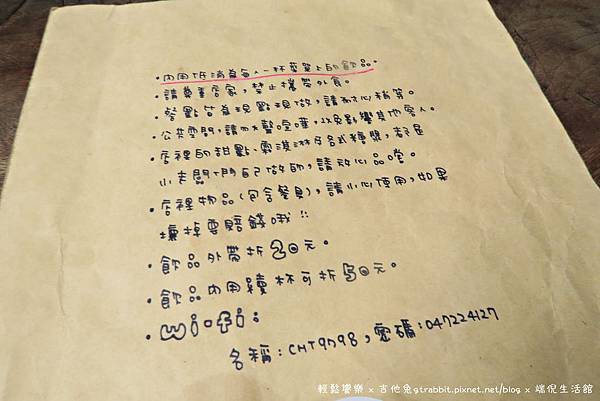 •內用低消為每人一杯菜單上的飲品。
•請尊重店家,禁止攜帶外食。
•餐點皆為現點現做,請耐心稍等。
•公共空間,請勿大聲喧嘩,以免影響其他客人。
•店裡的甜點、霜淇淋及各式糖漿,都是
小老闆們自己做的,請放心品嚐。
•店裡物品(包含餐具),請小心使用,如果
壞掉要賠錢哦!!
•飲品外帶折20元。
•飲品內用續杯可折50元。
•wi-fi:
名稱:CHT9798,密碼:047224127
輕鬆饗樂 x 吉他兔gtrabbit.pixnet.net/blog x 端倪生活館